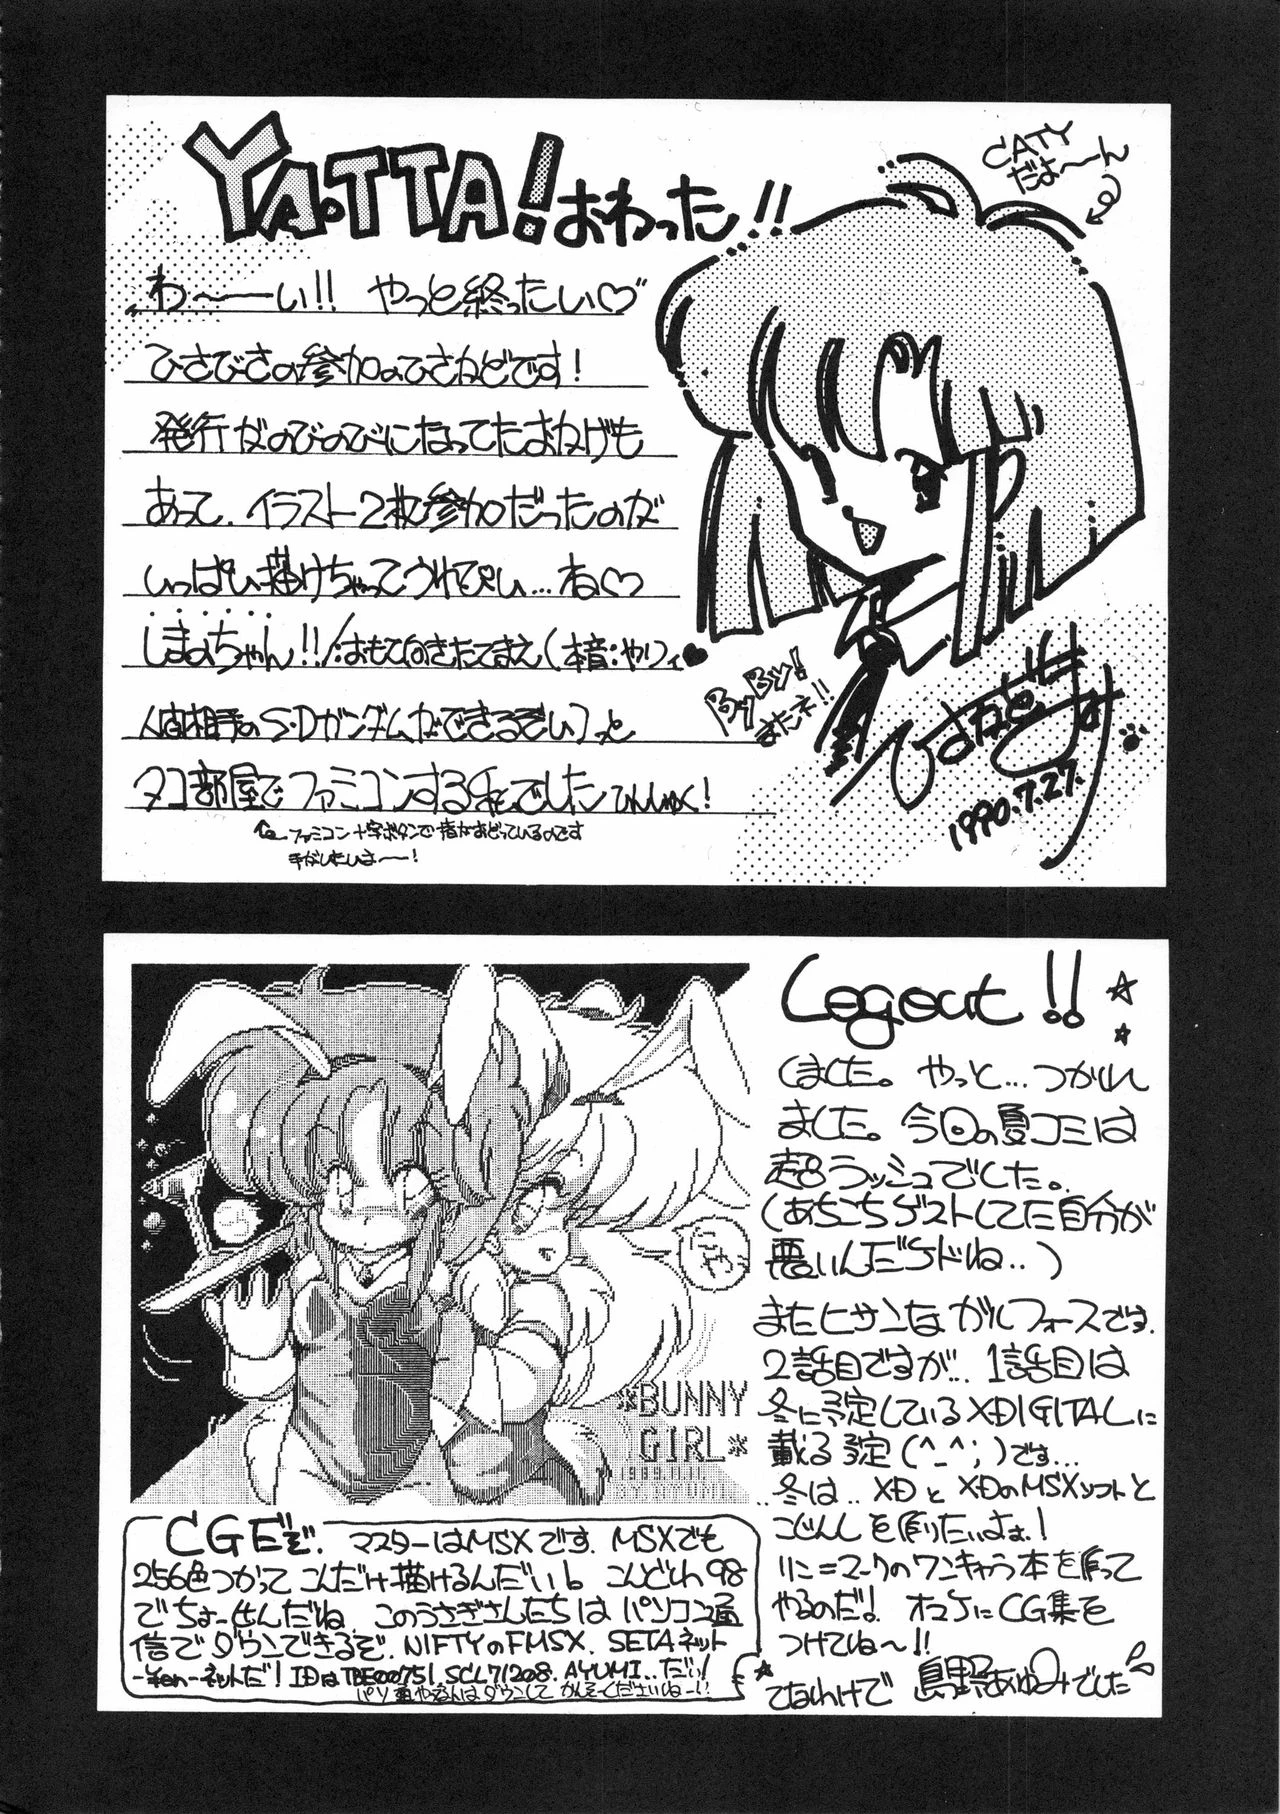 YATTA! おわった!!
CATY
だよ〜〜ん
わ〜〜い!! やっと終ったい♡
ひさびさの参加のひさねどです!
発行がのびのびになってたおかげも
あって、イラスト2枚参加だったのが
いっぱい描けちゃってうれぴい…ね♡
しまのちゃん!!/:おもて向きたてまえ(本音:やりィ♥
人間相手のS・Dガンダムができるぞい)っと
タコ部屋でファミコンする
でした
ファミコン十字ボタンで指がおどっているのです
手がしたいよ〜〜!
ByBy!
またネ!!
1990.7.27.
Logout!!
しました。やっと…つかれ
ました。今回の夏コミは
超ラッシュでした。
(あちこちゲストしてた自分が
悪いんだケドね..)
またヒサンなガルフォースです.
2話目ですが... 1話目は
冬に予定しているXDIGITALに
載る予定(^_^;)です…
..冬は..XDとXDのMSXソフトと
こじんしを作りたいよぉ!
リニ=マークのワンキャラ本を作って
やるのだよ! オマケにCG集を
つけてね〜!!
てなわけで 島野あゆみでした
にゃ
*BUNNY
GIRL*
1989.11.11.
BY.AYUMI
CGだぞ. マスターはMSXです. MSXでも
256色つかってこんだけ描けるんだいb こんどわ98
でちょーせんだね このうさぎさんたちはパソコン通
信でダウンできるぞ. NIFTYのFMSX. SETAネット
-¥en-ネットだ! IDはTBE00751. SCL71208. AYUMI..だい!
パソ通やるんはダウンして かんそーくださいねー!!